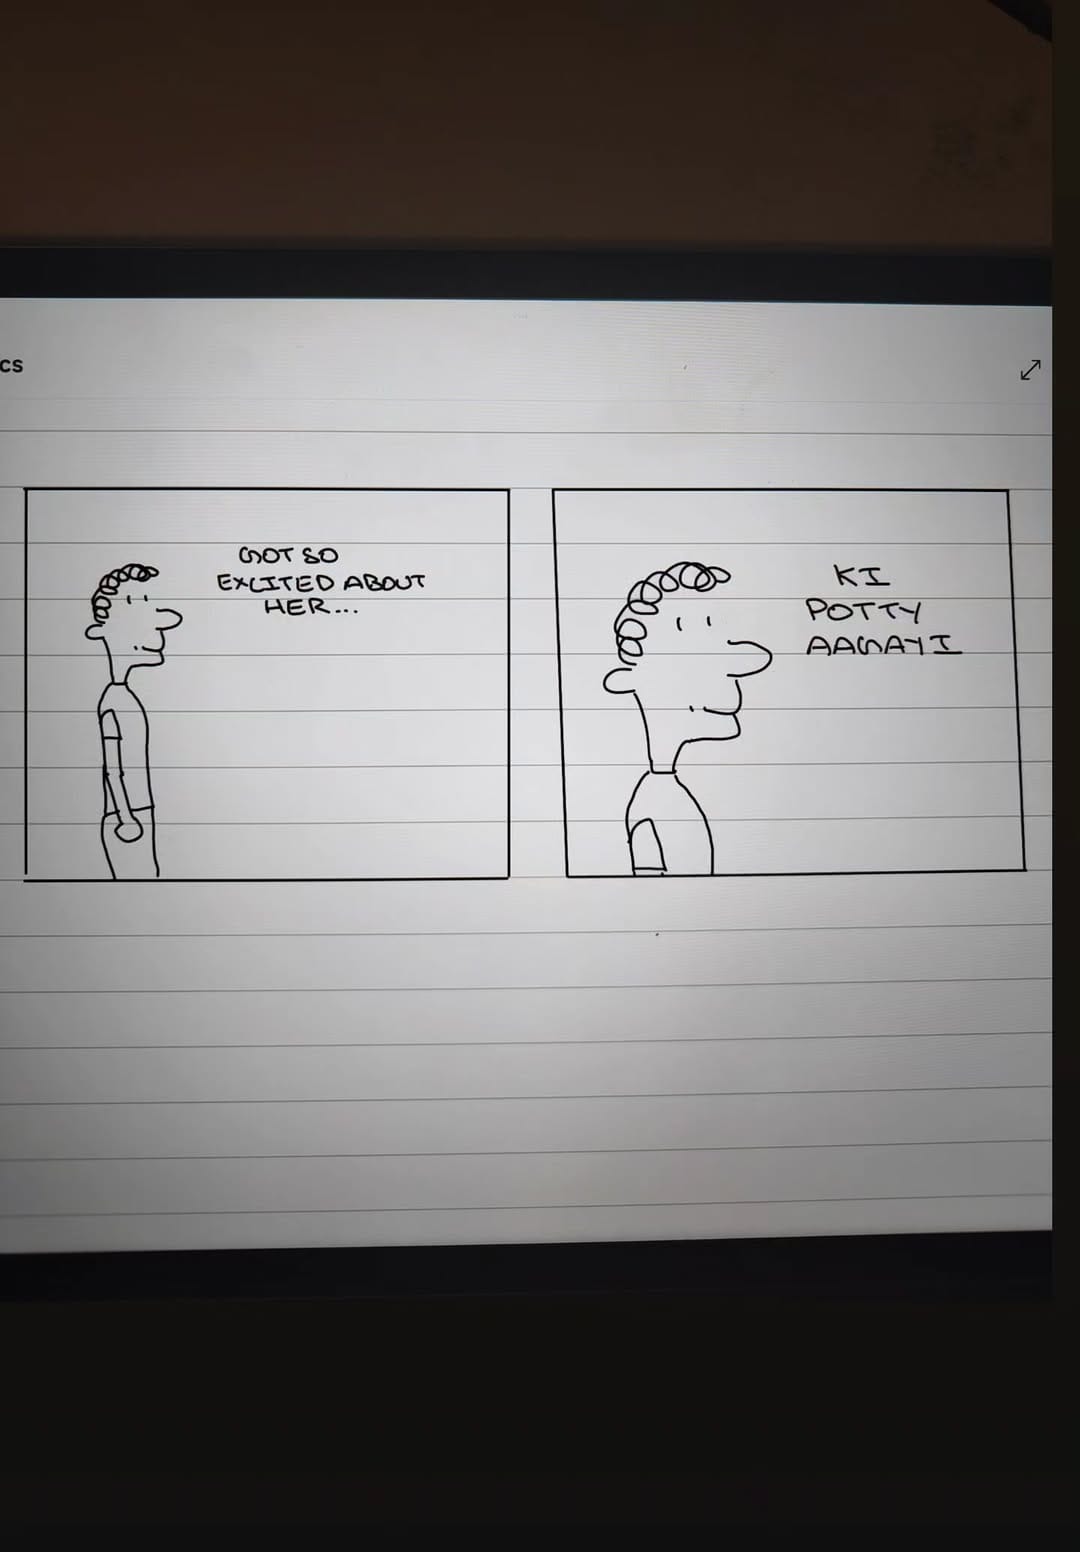 cs
GOT SO
EXCITED ABOUT
HER...
KI
POTTY
AAGAYI